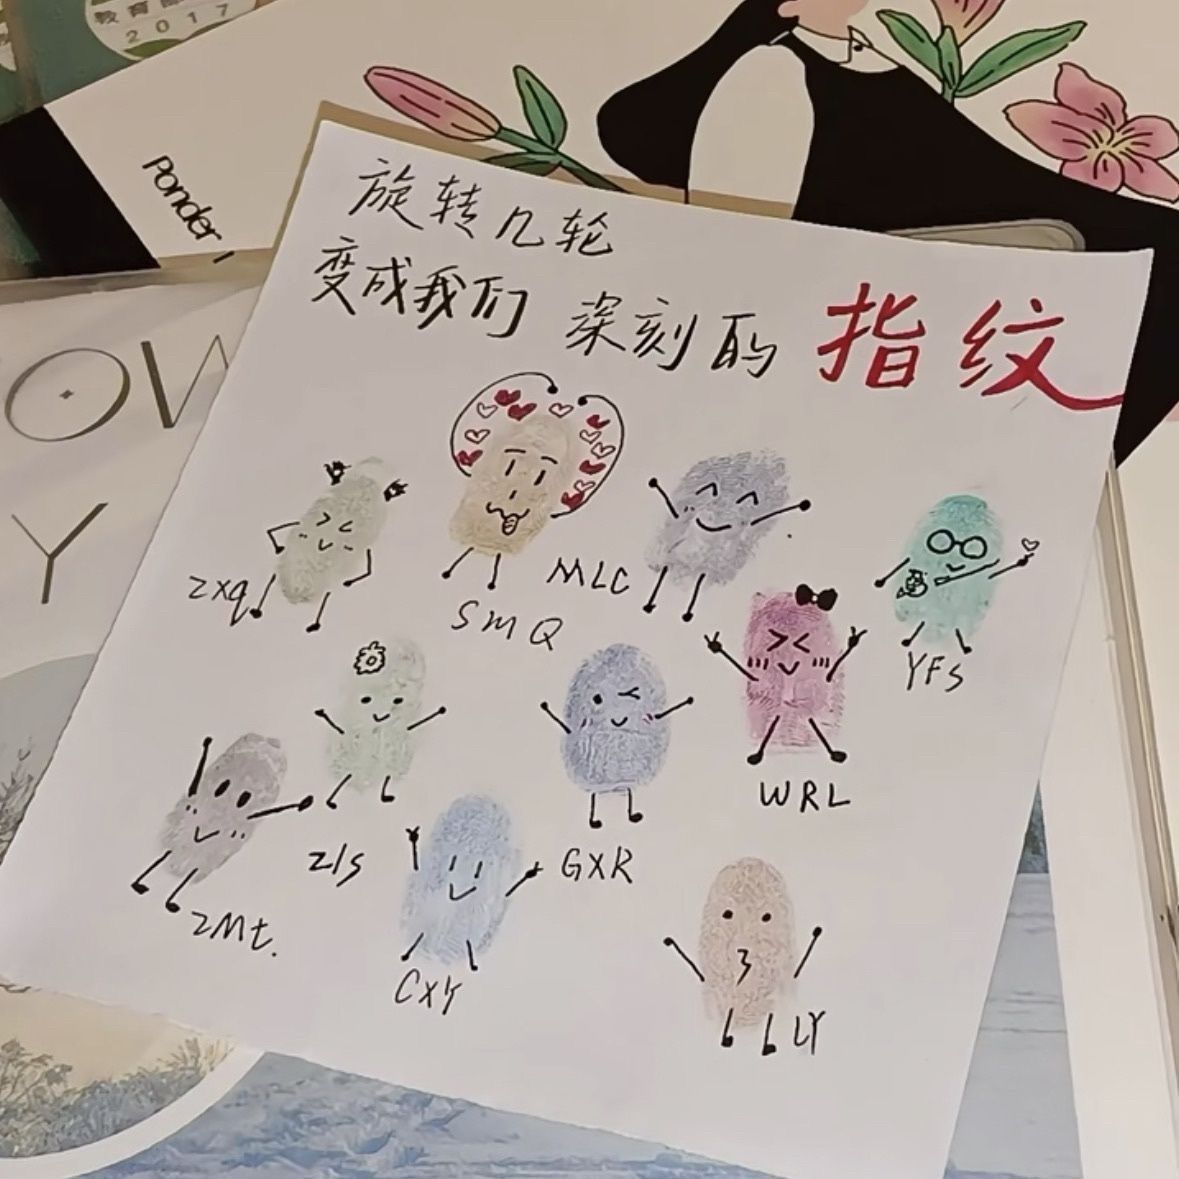 教育部
2017
Ponder,
旋转几轮
变成我们 深刻的 指纹
OW
Y
zxq
SMQ
MLC
YFS
WRL
zls
GXR
zMt.
CXY
LY